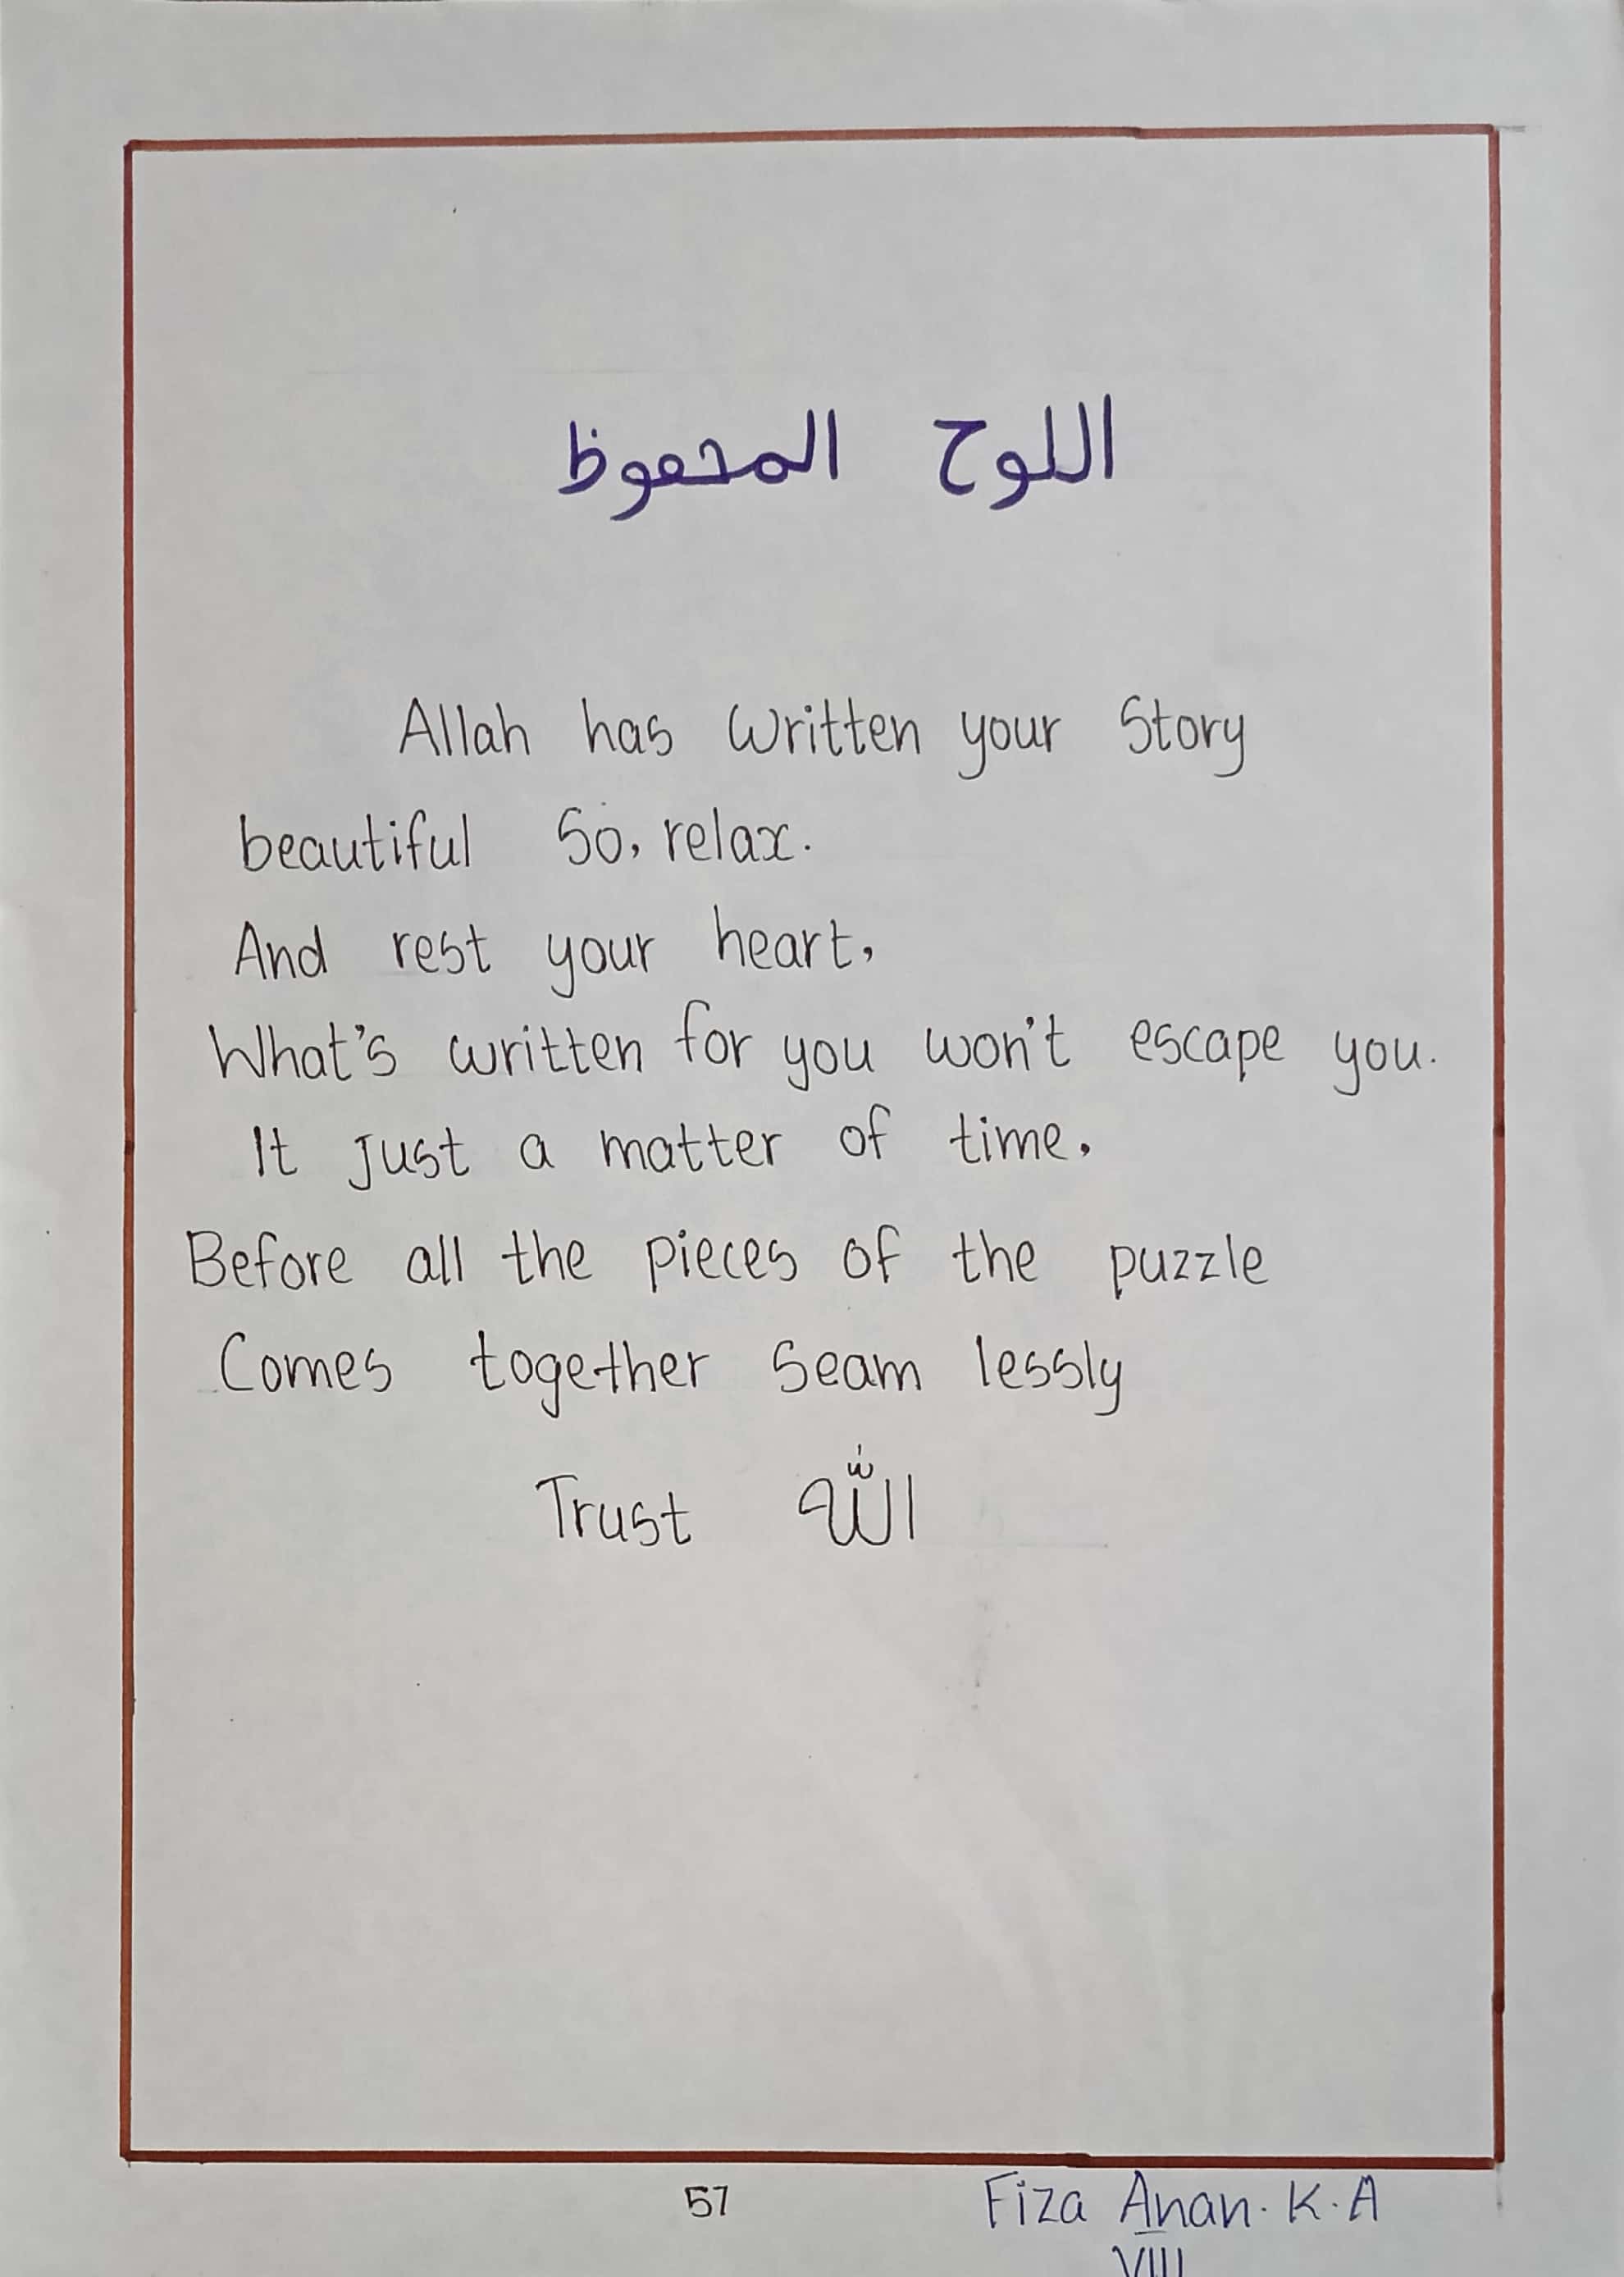 اللوح المحفوظ
Allah has written your Story
beautiful So, relax.
And rest your heart,
What's written for you won't escape you.
It just a matter of time.
Before all the pieces of the puzzle
Comes together seam lessly
Trust اللّٰه
57
Fiza Anan. K. A
VIII